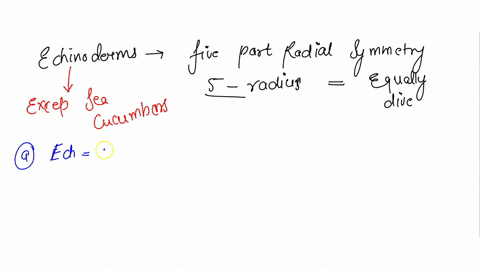 Echinoderms → five part Radial Symmetry
5 - radius = Equally
dive
Excep Sea
Cucumbers
a Ech =